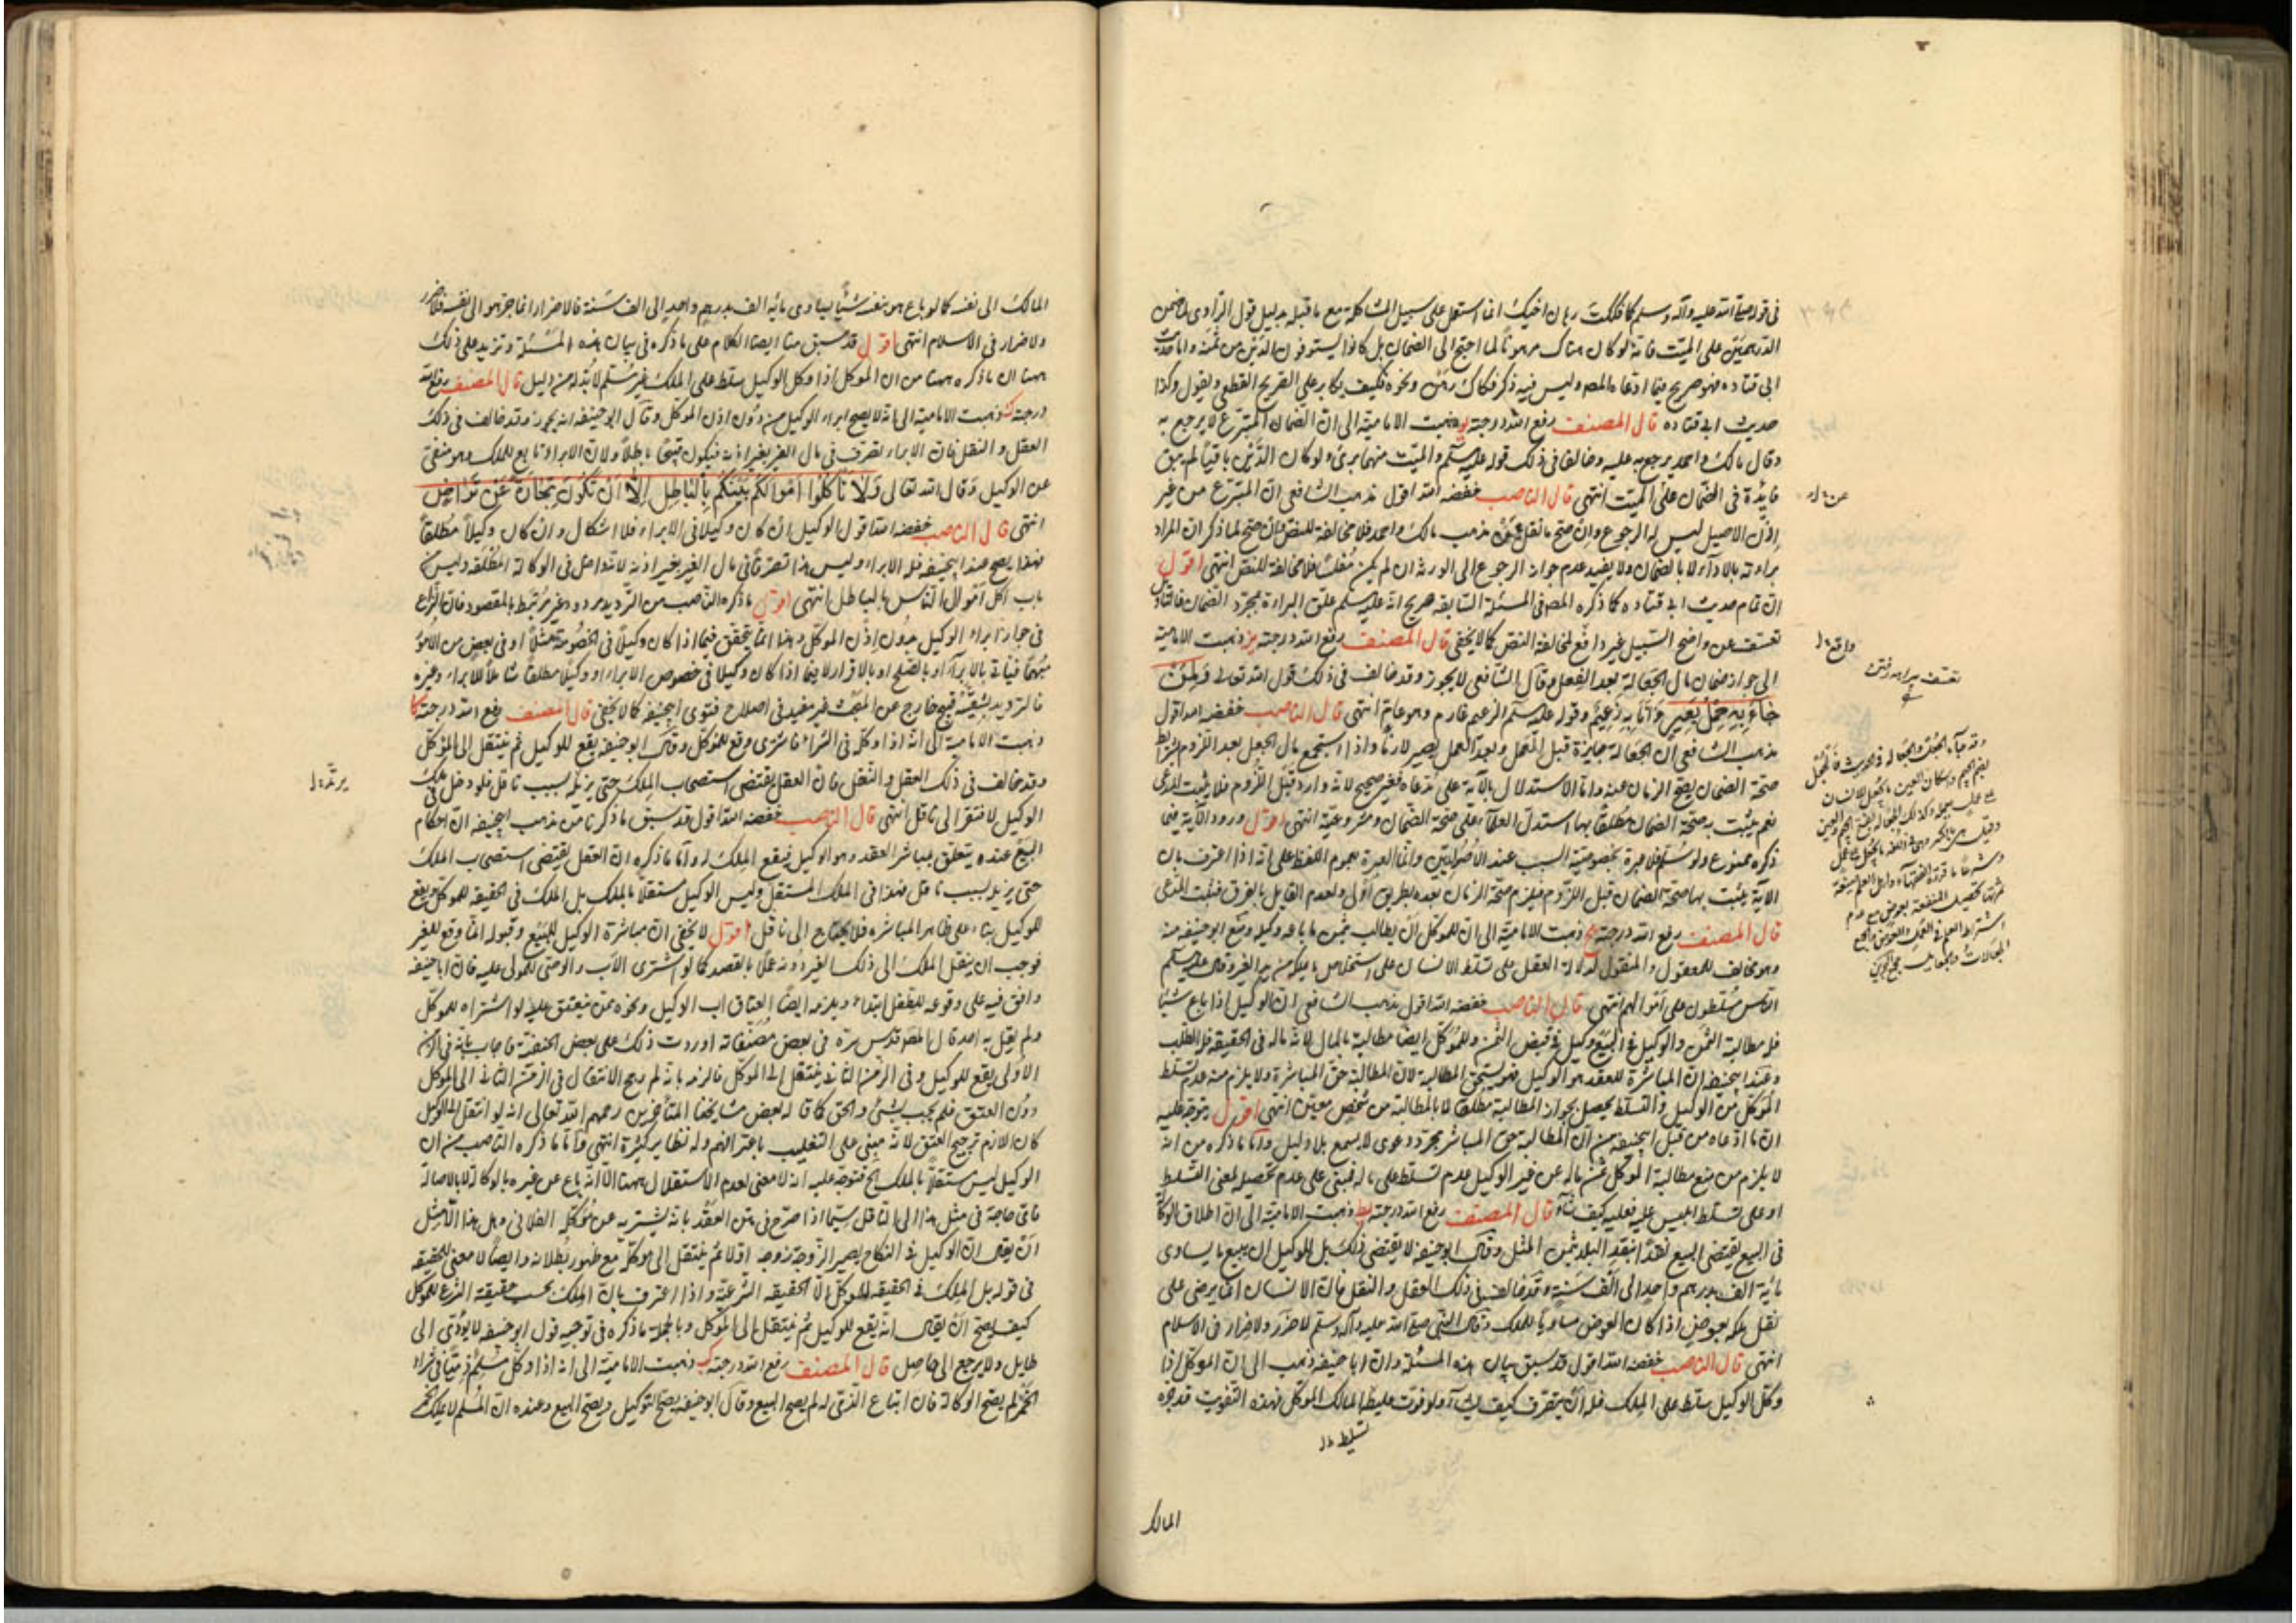 في قوله صلى الله عليه وآله وسلم كما فككت رهان اخيك انما استعمل على سبيل المشاكلة مع ما قبله بدليل قول الراوي
الدرهمين على الميت فانه لو كان هناك مرهونا لما احتج الى الضمان بل كانوا يستوفون الدين من ثمنه واما حديث
ابي قتاده فهو صريح فيما ادعاه المصـ وليس فيه ذكر فكاك رهن ونحوه فكيف يكابر على الصريح القطعي ويقول وكذا
حديث ابي قتاده قال المصنف رفع الله درجته يو ذهبت الامامية الى ان الضمان المتبرع لا يرجع به
وقال مالك واحمد يرجع به عليه وخالفا في ذلك قوله عليه السلم والميت منهما برئ ولو كان الدين باقيا لم يبق
فايدة في الضمان على الميت انتهى قال الناصب خفضه الله اقول ذهب الشافعي ان المتبرع من غير
اذن الاصيل ليس له الرجوع وان صح ما نقل عن مذهب مالك واحمد فلا مخالفة للنص لما ذكر ان المراد
براءته بالاداء لا بالضمان ولا يفيد عدم جواز الرجوع الى الورثة ان لم يكن مفلسا فلا مخالفة للنص انتهى اقول
ان تمام حديث ابي قتاده كما ذكره المصـ في المسئلة السابقة صريح انه عليه السلم علق البراءة بمجرد الضمان
تعسف عن واضح السبيل غير دافع لمخالفة النص كما لا يخفى قال المصنف رفع الله درجته يز ذهبت الامامية
الى جواز ضمان مال الجعالة بعد الفعل وقال الشافعي لا يجوز وقد خالف في ذلك قول الله تعالى ولمن
جاء به حمل بعير وانا به زعيم وقوله عليه السلم الزعيم غارم وهو عام انتهى قال الناصب خفضه الله اقول
مذهب الشافعي ان الجعالة جايزة قبل العمل وبعد العمل يصير لازما واذا استجمع مال الجعل بعد اللزوم شرايط
صحة الضمان يصح الزمان عنه واما الاستدلال بالآية على مدعاه فغير صحيح لانه وارد قبل اللزوم فلا يثبت المدعى
نعم يثبت به صحة الضمان مطلقا بها استدل العلماء على صحة الضمان ومشروعية انتهى اقول ورود الآية فيما
ذكره ممنوع ولو سلم فلا عبرة بخصوصية السبب عند الاصوليين وانما العبرة بعموم اللفظ على انه اذا اعترف بان
الآية يثبت بها صحة الضمان قبل اللزوم فيلزم صحة الزمان بعده بطريق اولى ولعدم القايل بالفرق فثبت المدعى
قال المصنف رفع الله درجته يح ذهبت الامامية الى ان للموكل ان يطالب بثمن ما باعه وكيله ومنع ابو حنيفه منه
وهو مخالف للمعقول والمنقول لدلالة العقل على تسلط الانسان على استخلاص ما يملكه من يد الغير وقال عليه السلم
الناس مسلطون على اموالهم انتهى قال الناصب خفضه الله اقول مذهب الشافعي ان الوكيل اذا باع شيئا
فله مطالبة الثمن والوكيل في البيع وكيل في قبض الثمن وللموكل ايضا مطالبة بالمال لانه ماله في الحقيقة فله الطلب
وعند ابيحنيفه ان المباشرة للعقد هو الوكيل فهو يستحق المطالبة لان المطالبة حق المباشرة ولا يلزم منه عدم تسلط
الموكل من الوكيل والتسلط يحصل بجواز المطالبة مطلقا لا بالمطالبة من شخص معين انتهى اقول يتوجه عليه
ان ما ادعاه من قبل ابيحنيفه من ان المطالبة حق المباشر مجرد دعوى لا يسمع بلا دليل واما ما ذكره من انه
لا يلزم من منع مطالبة الموكل ثمن ماله عن غير الوكيل عدم تسلط على ماله فمبني على عدم تحصيله لمعنى التسلط
او على تسلط ابليس عليه فعليه كيف شاء قال المصنف رفع الله درجته يط ذهبت الامامية الى ان اطلاق الوكالة
في البيع يقتضي البيع نقدا بنقد البلد بثمن المثل وقال ابو حنيفه لا يقتضي ذلك بل للوكيل ان يبيع ما يساوي
مائة الف بدرهم واحد الى الف سنة وقد خالف في ذلك العقل والنقل فان الانسان انما يرضى على
نقل ملكه بعوض اذا كان العوض مساويا للملك وقال النبي صلى الله عليه وآله وسلم لا ضرر ولا ضرار في الاسلام
انتهى قال الناصب خفضه الله اقول قد سبق بيان هذه المسئلة وان ابا حنيفه ذهب الى ان الموكل اذا
وكل الوكيل سلطه على الملك فله ان يتصرف كيف يشاء ولو فوت عليه المالك الموكل فهذه التفويت قد جره
تسليط
المالك
واقع
تعسف بيراهه رفتن
المالك الى نفسه كما لو باع هو بنفسه شيئا يساوي مائة الف بدرهم واحد الى الف سنة فالاضرار انما جره هو الى نفسه فلا ضرر
ولا ضرار في الاسلام انتهى اقول قد سبق منا ايضا الكلام على ما ذكره في بيان هذه المسئلة ونزيد على ذلك
ههنا ان ما ذكره ههنا من ان الموكل اذا وكل الوكيل سلطه على الملك غير مسلم لا بد له من دليل قال المصنف رفع الله
درجته ذهبت الامامية الى انه لا يصح ابراء الوكيل من دون اذن الموكل وقال ابو حنيفه انه يجوز وقد خالف في ذلك
العقل والنقل فان الابراء تصرف في مال الغير بغير اذنه فيكون قبيحا باطلا ولان الابراء تابع للملك وهو منفي
عن الوكيل وقال الله تعالى ولا تأكلوا اموالكم بينكم بالباطل الا ان تكون تجارة عن تراض
انتهى قال الناصب خفضه الله اقول الوكيل ان كان وكيلا في الابراء فلا اشكال وان كان وكيلا مطلقا
فهذا يصح عند ابيحنيفه فله الابراء وليس هذا تصرفا في مال الغير بغير اذنه لانه داخل في الوكالة المطلقة وليس من
باب اكل اموال الناس بالباطل انتهى اقول ما ذكره الناصب من الترديد مردود غير مرتبط بالمقصود فان النزاع
في جواز ابراء الوكيل بدون اذن الموكل وهذا انما يتحقق فيما اذا كان وكيلا في الخصومة مثلا او في بعض من الامور
مبهما فياتي بالابراء او بالصلح او بالاقرار لا فيما اذا كان وكيلا في خصوص الابراء او وكيلا مطلقا شاملا للابراء وغيره
فالترديد بشقيه قبيح خارج عن المبحث غير مفيد في اصلاح فتوى ابيحنيفه كما لا يخفى قال المصنف رفع الله درجته كا
ذهبت الامامية الى انه اذا وكله في الشراء فاشترى وقع للموكل وقال ابو حنيفه يقع للوكيل ثم ينتقل الى الموكل
وقد خالف في ذلك العقل والنقل فان العقل يقتضي استصحاب الملك حتى يزيله سبب ناقل فلو دخل في ملك
الوكيل لافتقر الى ناقل انتهى قال الناصب خفضه الله اقول قد سبق ما ذكرنا من مذهب ابيحنيفه ان احكام
البيع عنده يتعلق بمباشر العقد وهو الوكيل فيقع الملك له واما ما ذكره ان العقل يقتضي استصحاب الملك
حتى يزيله سبب ناقل فهذا في الملك المستقل وليس الوكيل مستقلا بالملك بل الملك في الحقيقه للموكل ويقع
للوكيل بناء على ظاهر المباشره فلا يحتاج الى ناقل اقول لا يخفى ان مباشرة الوكيل للبيع وقبوله انما وقع للغير
فوجب ان ينتقل الملك الى ذلك الغير دونه عملا بالقصد كما لو اشترى الاب والوصي للمولى عليه فان ابا حنيفه
وافق فيه على وقوعه للطفل ابتداء ويلزمه ايضا انعتاق اب الوكيل ونحوه ممن ينعتق عليه لو اشتراه للموكل
ولم يقل به احد قال المصـ قدس سره في بعض مصنفاته اوردت ذلك على بعض الحنفية فاجاب بانه في الزمن
الاولى يقع للوكيل وفي الزمن الثاني ينتقل الى الموكل فالزمه بانه لم رجح الانتقال في الزمن الثاني الى الموكل
دون العتق فلم يجب بشئ والحق كما قاله بعض مشايخنا المتأخرين رحمهم الله تعالى انه لو انتقل الى الوكيل
كان اللازم ترجيح العتق لانه مبني على التغليب باعترافهم وله نظاير كثيرة انتهى واما ما ذكره الناصب من ان
الوكيل ليس مستقلا بالملك فيتوجه عليه انه لا معنى لعدم الاستقلال ههنا الا انه باع عن غيره بالوكالة لا بالاصالة
فاي حاجة في مثل هذا الى الناقل سيما اذا صرح في متن العقد بانه يشتريه عن موكله الفلاني وهل هذا الا مثل
ان يقال ان الوكيل في النكاح يصير الزوجة زوجه اولا ثم ينتقل الى موكله مع ظهور بطلانه وايضا لا معنى للحقيقه
في قوله بل الملك في الحقيقه للموكل الا الحقيقه الشرعية واذا اعترف بان الملك بحسب حقيقة الشرع للموكل
كيف يصح ان يقال انه يقع للوكيل ثم ينتقل الى الموكل وبالجملة ما ذكره في توجيه قول ابو حنيفه لا يؤدى الى
طايل ولا يرجع الى حاصل قال المصنف رفع الله درجته كب ذهبت الامامية الى انه اذا وكل مسلم ذميا في شراء
الخمر لم يصح الوكالة فان ابتاع الذمي له لم يصح البيع وقال ابو حنيفه يصح التوكيل ويصح البيع وعنده ان المسلم لا يملك الخمر